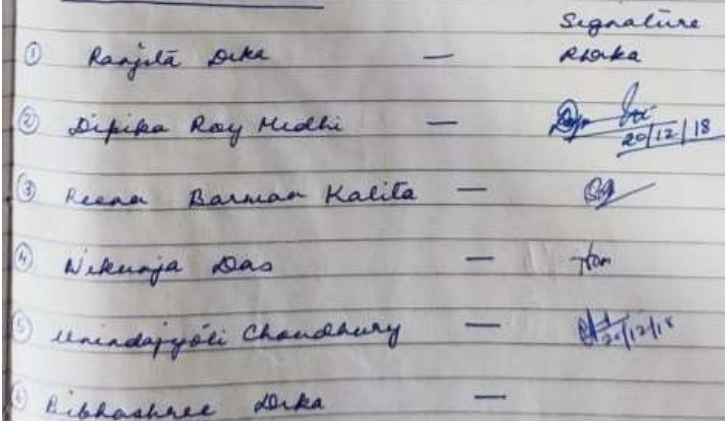 Signature
① Ranjita Deka — RDeka
② Dipika Roy Medhi — 20/12/18
③ Reena Barman Kalita —
④ Nikunja Das —
⑤ Unindajyoti Choudhury — 20/12/18
⑥ Bibhashree Deka —